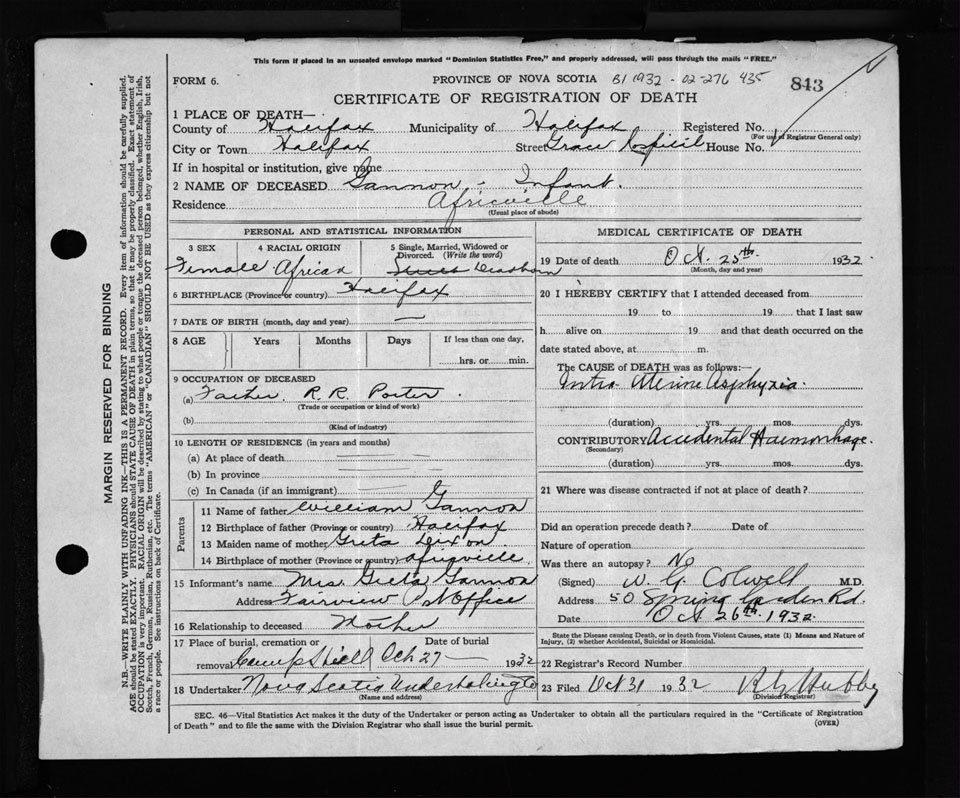 This form if placed in an unsealed envelope marked "Dominion Statistics Free," and properly addressed, will pass through the mails "FREE."
FORM 6. PROVINCE OF NOVA SCOTIA B1 1932 - 02-276 435 843
CERTIFICATE OF REGISTRATION OF DEATH
1 PLACE OF DEATH—
County of Halifax Municipality of Halifax Registered No.
(For use of Registrar General only)
City or Town Halifax Street Grace Hospital House No.
If in hospital or institution, give name
2 NAME OF DECEASED Gannon - Infant.
Residence Africville
(Usual place of abode)
PERSONAL AND STATISTICAL INFORMATION
3 SEX 4 RACIAL ORIGIN 5 Single, Married, Widowed or Divorced. (Write the word)
Female African Deadborn
6 BIRTHPLACE (Province or country) Halifax
7 DATE OF BIRTH (month, day and year) —
8 AGE Years Months Days If less than one day,
hrs. or min.
9 OCCUPATION OF DECEASED
(a) Father. R.R. Porter.
(Trade or occupation or kind of work)
(b)
(Kind of industry)
10 LENGTH OF RESIDENCE (in years and months)
(a) At place of death
(b) In province
(c) In Canada (if an immigrant)
Parents
11 Name of father William G Gannon
12 Birthplace of father (Province or country) Halifax
13 Maiden name of mother Greta Dixon
14 Birthplace of mother (Province or country) Africville
15 Informant's name Mrs. Greta Gannon
Address Fairview P Office
16 Relationship to deceased Mother
17 Place of burial, cremation or removal Date of burial
Camp Hill Oct 27— 1932
18 Undertaker Nova Scotia Undertaking Co
(Name and address)
MEDICAL CERTIFICATE OF DEATH
19 Date of death Oct. 25th 1932.
(Month, day and year)
20 I HEREBY CERTIFY that I attended deceased from
19 to 19 that I last saw
h alive on 19 and that death occurred on the
date stated above, at m.
The CAUSE of DEATH was as follows:—
Intra Uterine Asphyxia.
(duration) yrs. mos. dys.
CONTRIBUTORY Accidental Haemorrhage.
(Secondary)
(duration) yrs. mos. dys.
21 Where was disease contracted if not at place of death?
Did an operation precede death? Date of
Nature of operation
Was there an autopsy? No
(Signed) W. G. Colwell M.D.
Address 50 Spring Garden Rd.
Date Oct 26th. 1932.
State the Disease causing Death, or in death from Violent Causes, state (1) Means and Nature of Injury, (2) whether Accidental, Suicidal or Homicidal.
22 Registrar's Record Number
23 Filed Oct 31 1932
(Division Registrar)
SEC. 46—Vital Statistics Act makes it the duty of the Undertaker or person acting as Undertaker to obtain all the particulars required in the "Certificate of Registration
of Death" and to file the same with the Division Registrar who shall issue the burial permit. (OVER)
MARGIN RESERVED FOR BINDING
N.B.—WRITE PLAINLY WITH UNFADING INK—THIS IS A PERMANENT RECORD. Every item of information should be carefully supplied.
AGE should be stated EXACTLY. PHYSICIANS should STATE CAUSE OF DEATH in plain terms, so that it may be properly classified. Exact statement of
OCCUPATION is very important. RACIAL ORIGIN will be described by stating to what people or tongue the deceased person belonged, whether English, Irish,
Scotch, French, German, Russian, Ruthenian, etc. The terms "AMERICAN" or "CANADIAN" SHOULD NOT BE USED as they express citizenship but not
a race or people. See instructions on back of Certificate.